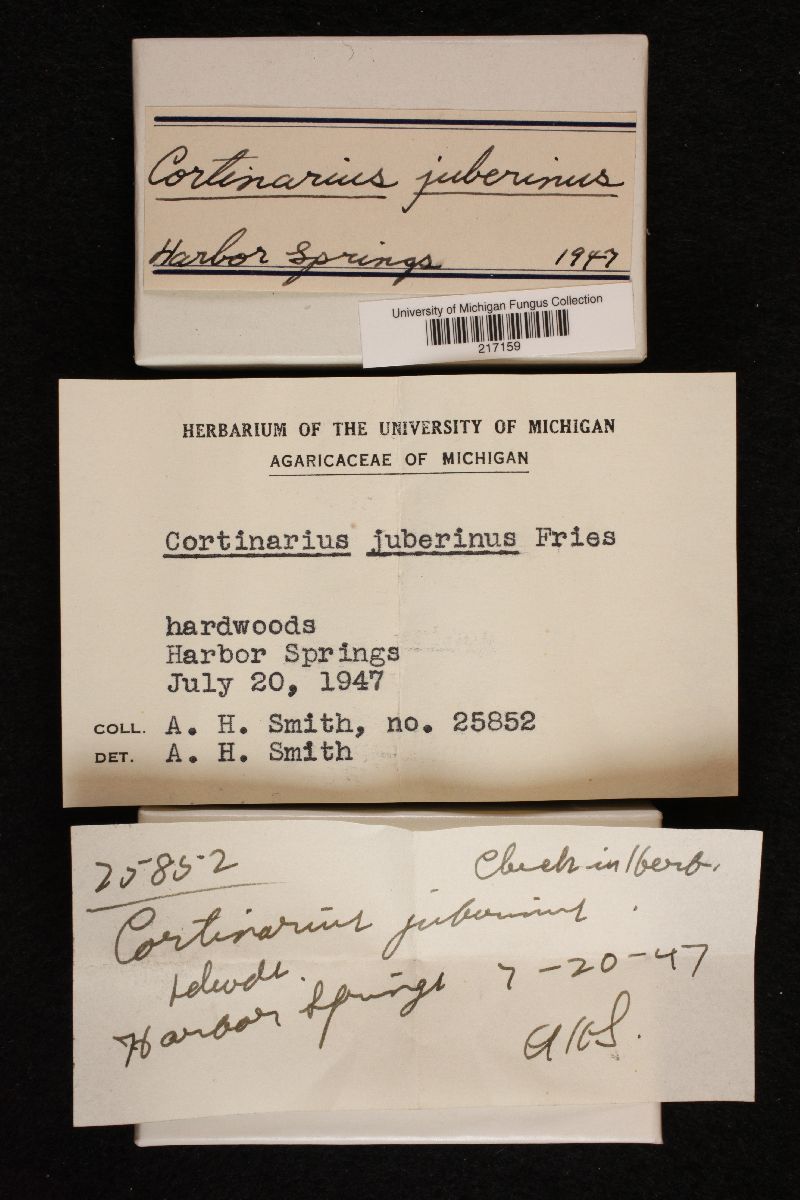 Cortinarius juberinus
Harbor Springs 1947
University of Michigan Fungus Collection
217159
HERBARIUM OF THE UNIVERSITY OF MICHIGAN
AGARICACEAE OF MICHIGAN
Cortinarius juberinus Fries
hardwoods
Harbor Springs
July 20, 1947
COLL. A. H. Smith, no. 25852
DET. A. H. Smith
25852 Check in herb.
Cortinarius juberinus.
hdwds.
Harbor Springs 7-20-47
AHS.